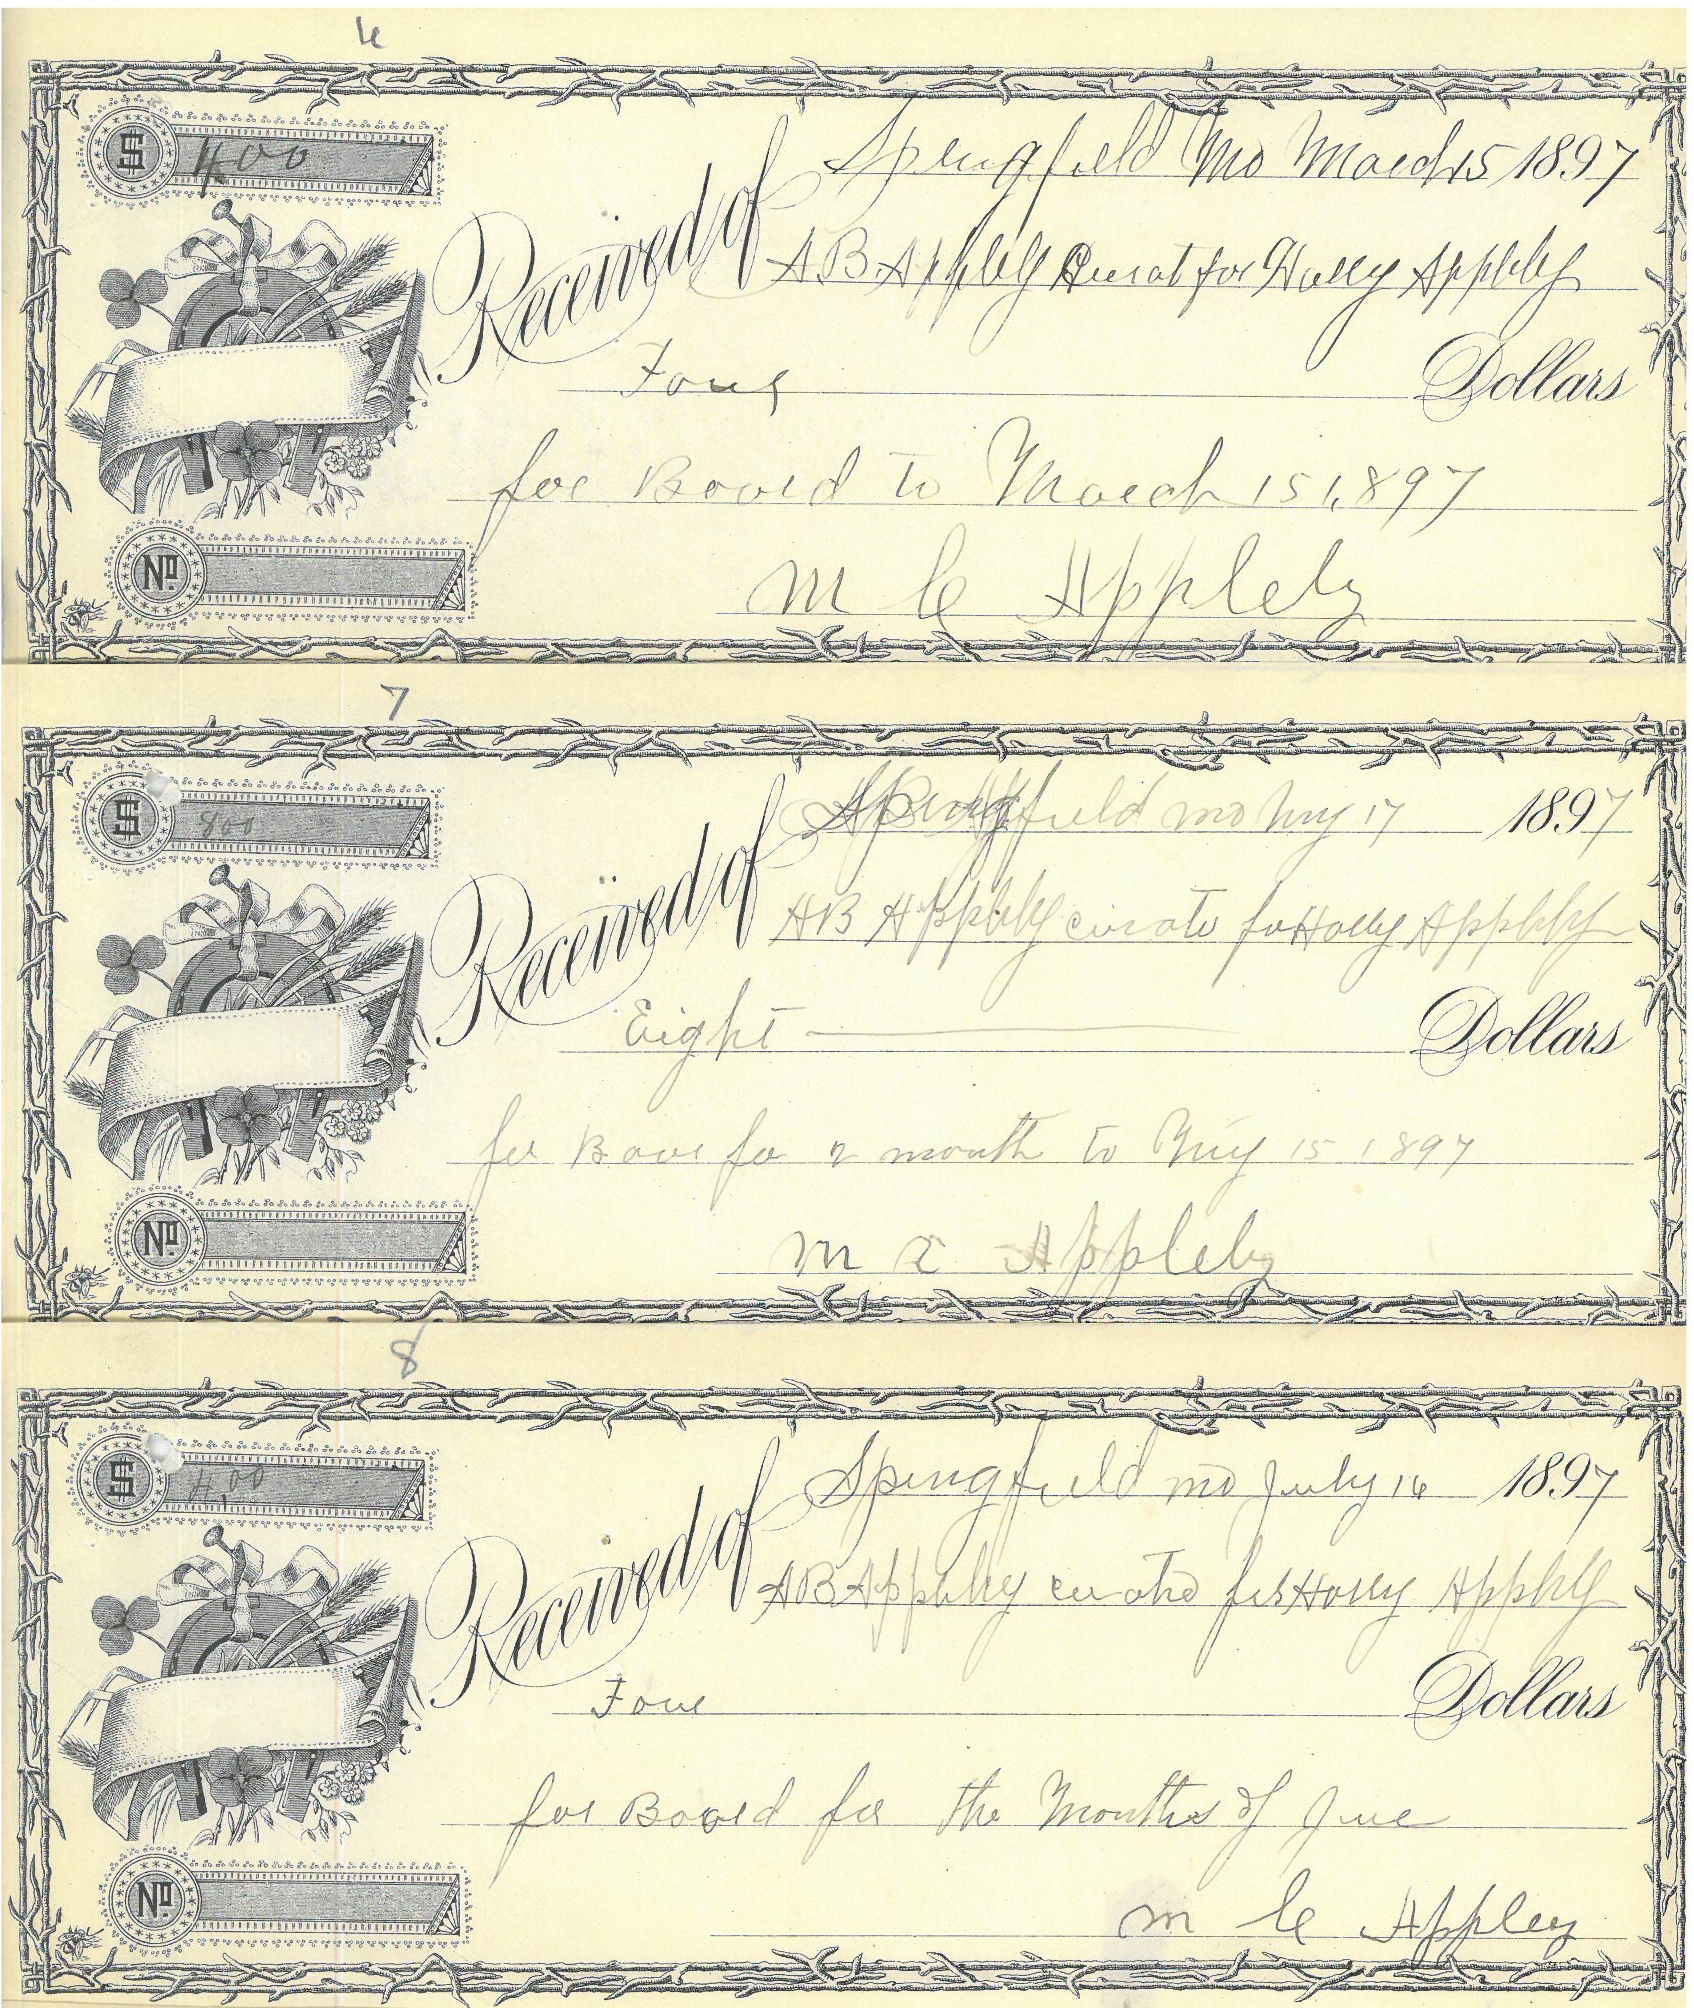 6
$ 4.00
Springfield Mo March 15 1897
Received of A B Appleby Curat for Holly Appleby
Four Dollars
for Board to March 15 1897
M C Appleby
No.
7
$ 800
Springfield mo May 17 1897
Received of A B Appleby curato for Holly Appleby
Eight Dollars
for Board for 2 month to May 15 1897
M C Appleby
No.
8
$ 4.00
Springfield mo July 16 1897
Received of A B Appleby for Holly Appleby
Four Dollars
for Board for the Months of June
M C Appleby
No.